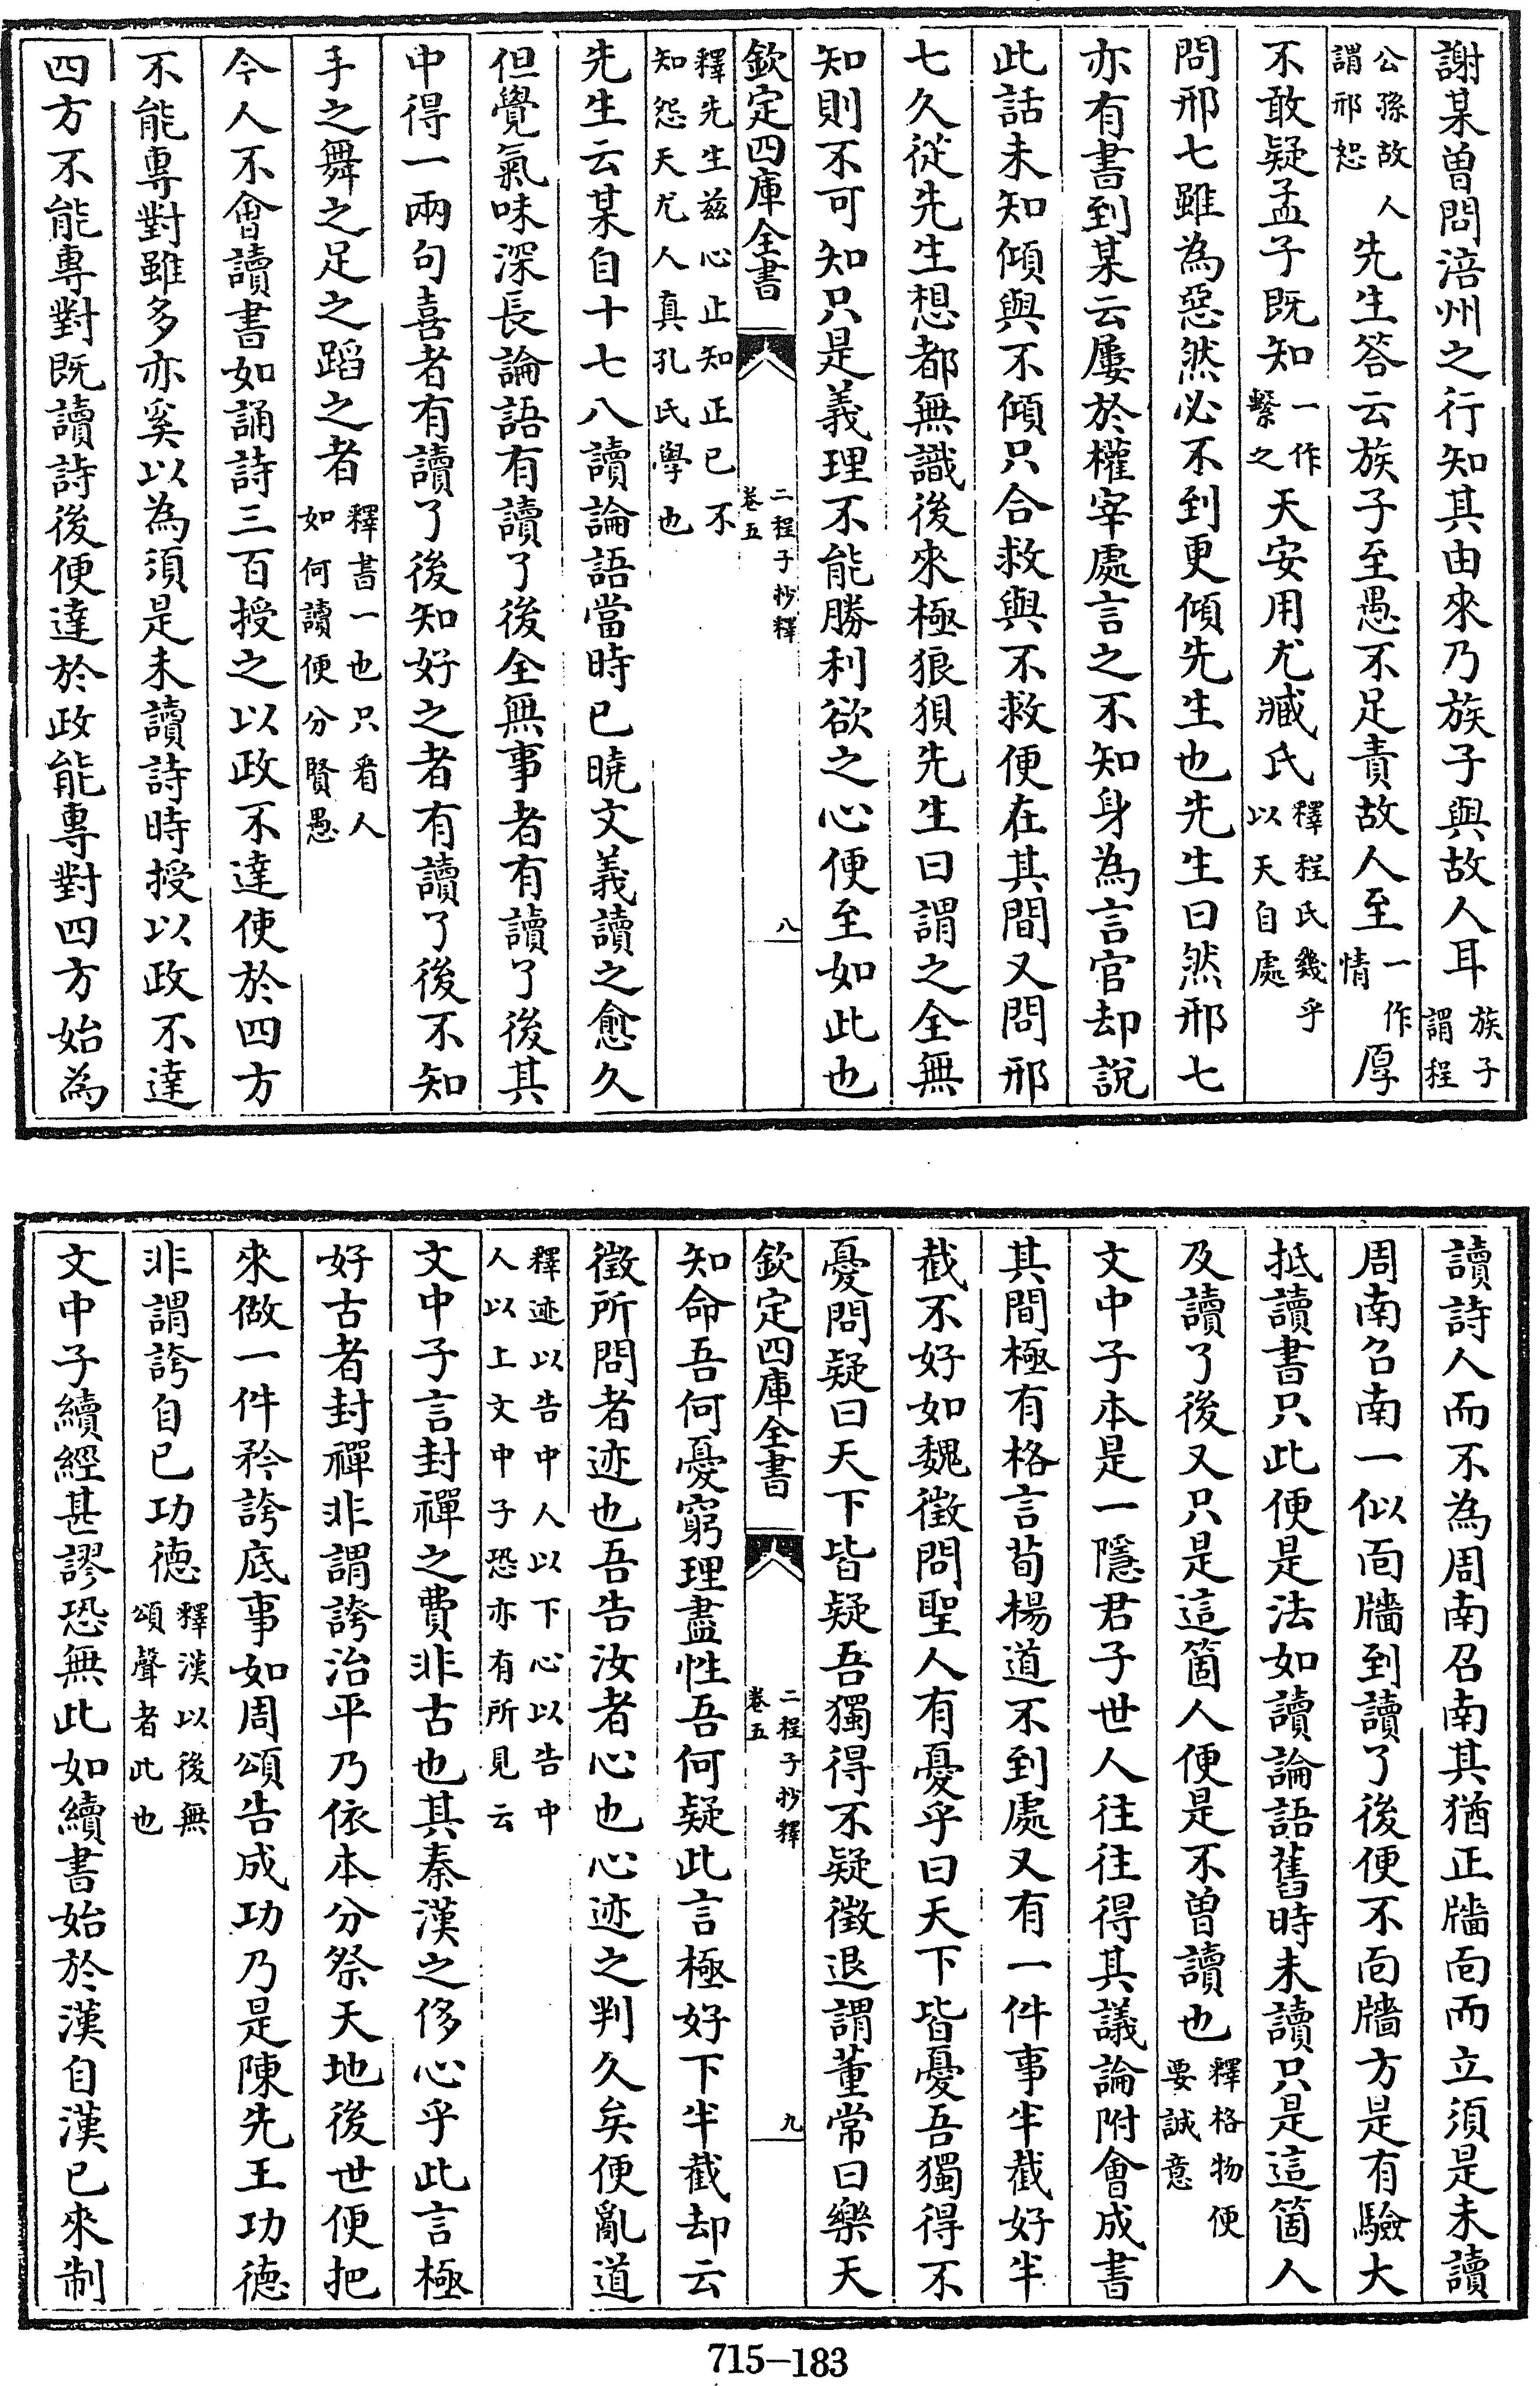 謝某曽問涪州之行知其由來乃族子與故人耳族子謂程
公孫故人謂邢恕先生答云族子至愚不足責故人至一作情厚
不敢疑孟子既知一作繫之天安用尤臧氏釋程氏幾乎以天自處
問邢七雖為惡然必不到更傾先生也先生曰然邢七
亦有書到某云屢於權宰處言之不知身為言官却說
此話未知傾與不傾只合救與不救便在其間又問邢
七久從先生想都無識後來極狼狽先生曰謂之全無
知則不可知只是義理不能勝利欲之心便至如此也
欽定四庫全書 二程子抄釋 卷五 八
釋先生兹心止知正已不知怨天尤人真孔氏學也
先生云某自十七八讀論語當時已曉文義讀之愈久
但覺氣味深長論語有讀了後全無事者有讀了後其
中得一兩句喜者有讀了後知好之者有讀了後不知
手之舞之足之蹈之者釋書一也只看人如何讀便分賢愚
今人不會讀書如誦詩三百授之以政不達使於四方
不能專對雖多亦奚以為須是未讀詩時授以政不達
四方不能專對既讀詩後便達於政能專對四方始為
讀詩人而不為周南召南其猶正牆面而立須是未讀
周南召南一似面牆到讀了後便不面牆方是有驗大
抵讀書只此便是法如讀論語舊時未讀只是這箇人
及讀了後又只是這箇人便是不曽讀也釋格物便要誠意
文中子本是一隱君子世人往往得其議論附會成書
其間極有格言荀楊道不到處又有一件事半截好半
截不好如魏徵問聖人有憂乎曰天下皆憂吾獨得不
憂問疑曰天下皆疑吾獨得不疑徵退謂董常曰樂天
欽定四庫全書 二程子抄釋 卷五 九
知命吾何憂窮理盡性吾何疑此言極好下半截却云
徵所問者迹也吾告汝者心也心迹之判久矣便亂道
釋迹以告中人以下心以告中人以上文中子恐亦有所見云
文中子言封禪之費非古也其秦漢之侈心乎此言極
好古者封禪非謂誇治平乃依本分祭天地後世便把
來做一件矜誇底事如周頌告成功乃是陳先王功德
非謂誇自已功德釋漢以後無頌聲者此也
文中子續經甚謬恐無此如續書始於漢自漢已來制
715-183